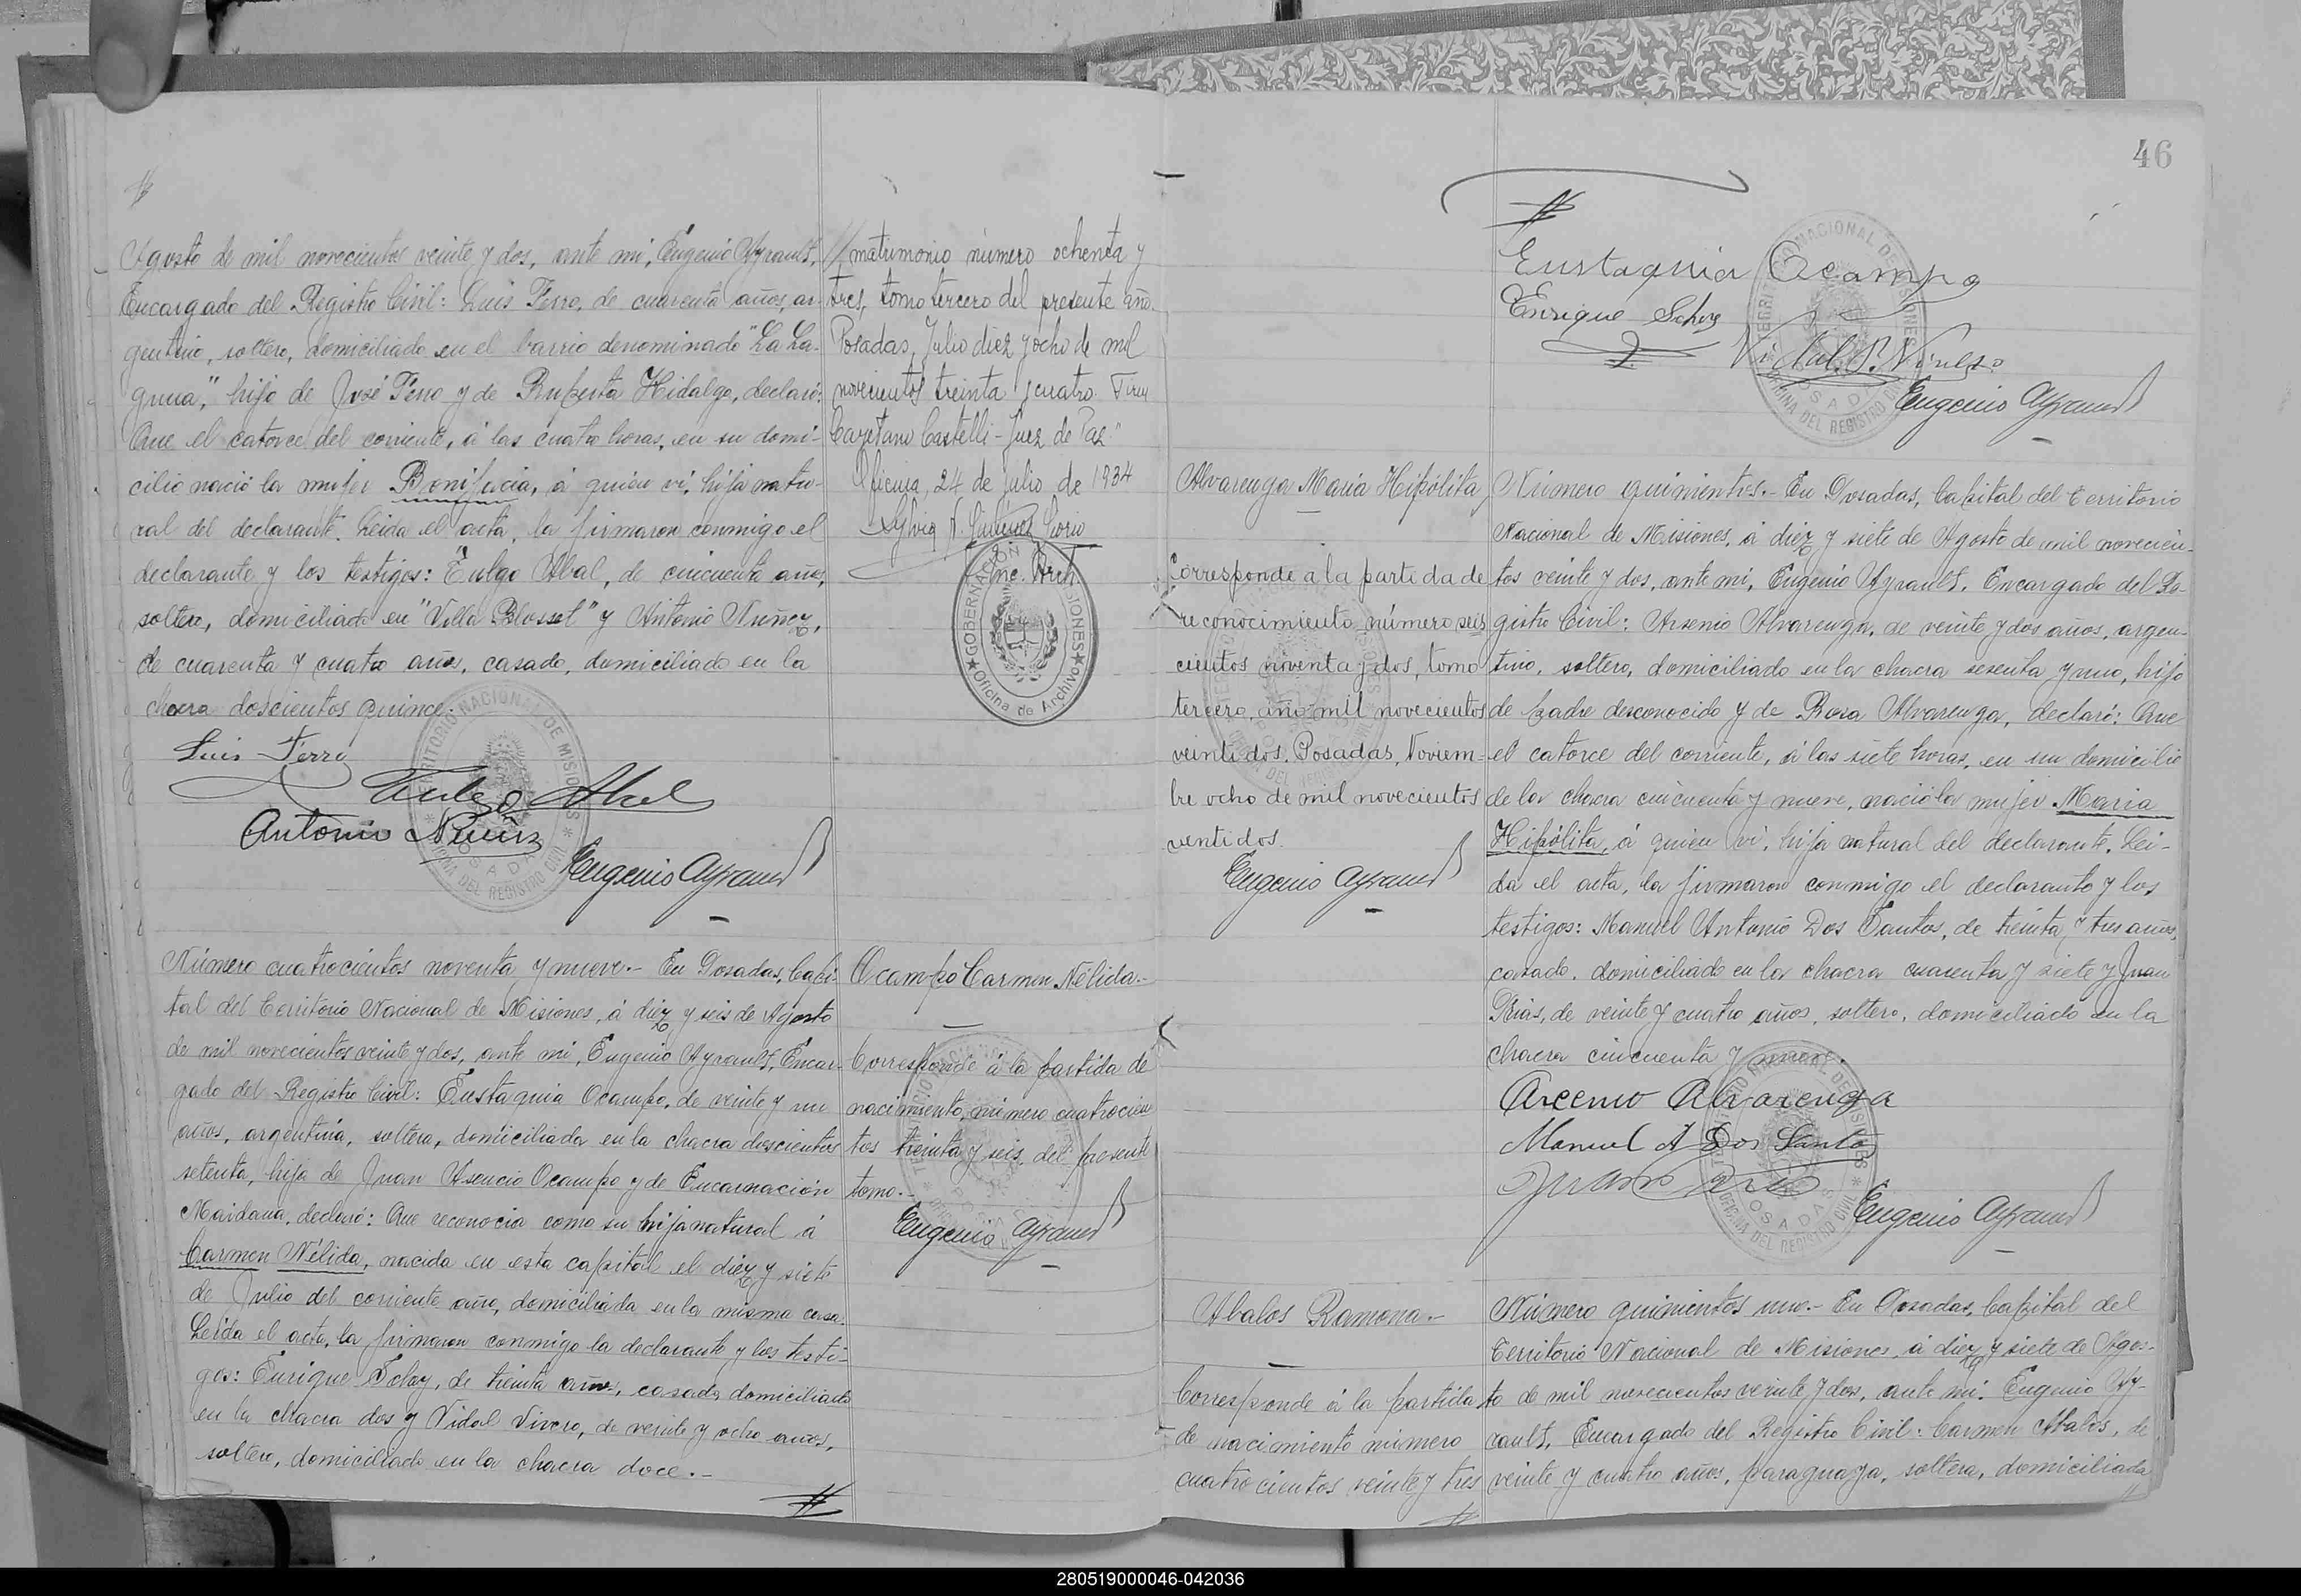 46
Agosto de mil novecientos veinte y dos, ante mi, Eugenio Ayrault,
Encargado del Registro Civil: Luis Ferro, de cuarenta años, ar-
gentino, soltero, domiciliado en el barrio denominado "La La-
guna", hijo de José Ferro y de Ruperta Hidalgo, declaró:
Que el catorce del corriente, á las cuatro horas, en su domi-
cilio nació la mujer Bonifacia, á quien vi, hija natu-
ral del declarante. Leida el acta, la firmaron conmigo el
declarante y los testigos: Tulgo Abal, de cincuenta años,
soltero, domiciliado en "Villa Blosset" y Antonio Nuñez,
de cuarenta y cuatro años, casado, domiciliado en la
chacra doscientos quince.
Luis Ferro
Tulgo Abal
Antonio Nuñez
Eugenio Ayrault
// matrimonio número ochenta y
tres, tomo tercero del presente año.
Posadas, Julio diez y ocho de mil
novecientos treinta y cuatro. Firm
Cayetano Castelli - Juez de Paz."
Oficina, 24 de Julio de 1934
Enc. Arch.
GOBERNACION MISIONES
Oficina de Archivo
Número cuatrocientos noventa y nueve.- En Posadas, Capi-
tal del Territorio Nacional de Misiones, á diez y seis de Agosto
de mil novecientos veinte y dos, ante mi, Eugenio Ayrault, Encar-
gado del Registro Civil: Eustaquia Ocampo, de veinte y un
años, argentina, soltera, domiciliada en la chacra doscientos
setenta, hija de Juan Asencio Ocampo y de Encarnación
Maidana, declaró: Que reconocia como su hija natural á
Carmen Nélida, nacida en esta capital el diez y siete
de Julio del corriente año, domiciliada en la misma casa.
Leida el acta, la firmaron conmigo la declarante y los testi-
gos: Enrique Schoy, de treinta años, casado, domiciliado
en la chacra dos y Vidal Vivero, de veinte y ocho años,
soltero, domiciliado en la chacra doce.-
Ocampo Carmen Nélida.-
Corresponde á la partida de
nacimiento, número cuatrocien
tos treinta y seis, del presente
tomo.-
Eugenio Ayrault
Eustaquia Ocampo
Enrique
Eugenio Ayrault
TERRITORIO NACIONAL DE MISIONES
POSADAS
OFICINA DEL REGISTRO CIVIL
Alvarenga Maria Hipólita
Corresponde a la partida de
reconocimiento número seis
cientos noventa y dos, tomo
tercero, año mil novecientos
veintidos. Posadas, Noviem-
bre ocho de mil novecientos
ventidos.
Eugenio Ayrault
Número quinientos.- En Posadas, Capital del Territorio
Nacional de Misiones, á diez y siete de Agosto de mil novecien-
tos veinte y dos, ante mi, Eugenio Ayrault, Encargado del Re-
gistro Civil: Arsenio Alvarenga, de veinte y dos años, argen-
tino, soltero, domiciliado en la chacra sesenta y uno, hijo
de padre desconocido y de Rosa Alvarenga, declaró: Que
el catorce del corriente, á las siete horas, en su domicilio
de la chacra cincuenta y nueve, nació la mujer Maria
Hipólita, á quien vi, hija natural del declarante. Lei-
da el acta, la firmaron conmigo el declarante y los
testigos: Manuel Antonio Dos Santos, de treinta y tres años,
casado, domiciliado en la chacra cuarenta y siete y Juan
Rias, de veinte y cuatro años, soltero, domiciliado en la
chacra cincuenta y nueve.
Arcenio Alvarenga
Manuel A Dos Santos
Eugenio Ayrault
Abalos Ramona.-
Corresponde á la partida
de nacimiento número
cuatrocientos veinte y tres
Número quinientos uno.- En Posadas, Capital del
Territorio Nacional de Misiones, á diez y siete de Agos-
to de mil novecientos veinte y dos, ante mi: Eugenio Ay-
rault, Encargado del Registro Civil: Carmen Abalos, de
veinte y cuatro años, paraguaya, soltera, domiciliada
280519000046-042036